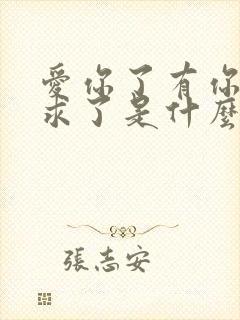 愛你了有你
求了是什麼
張志安